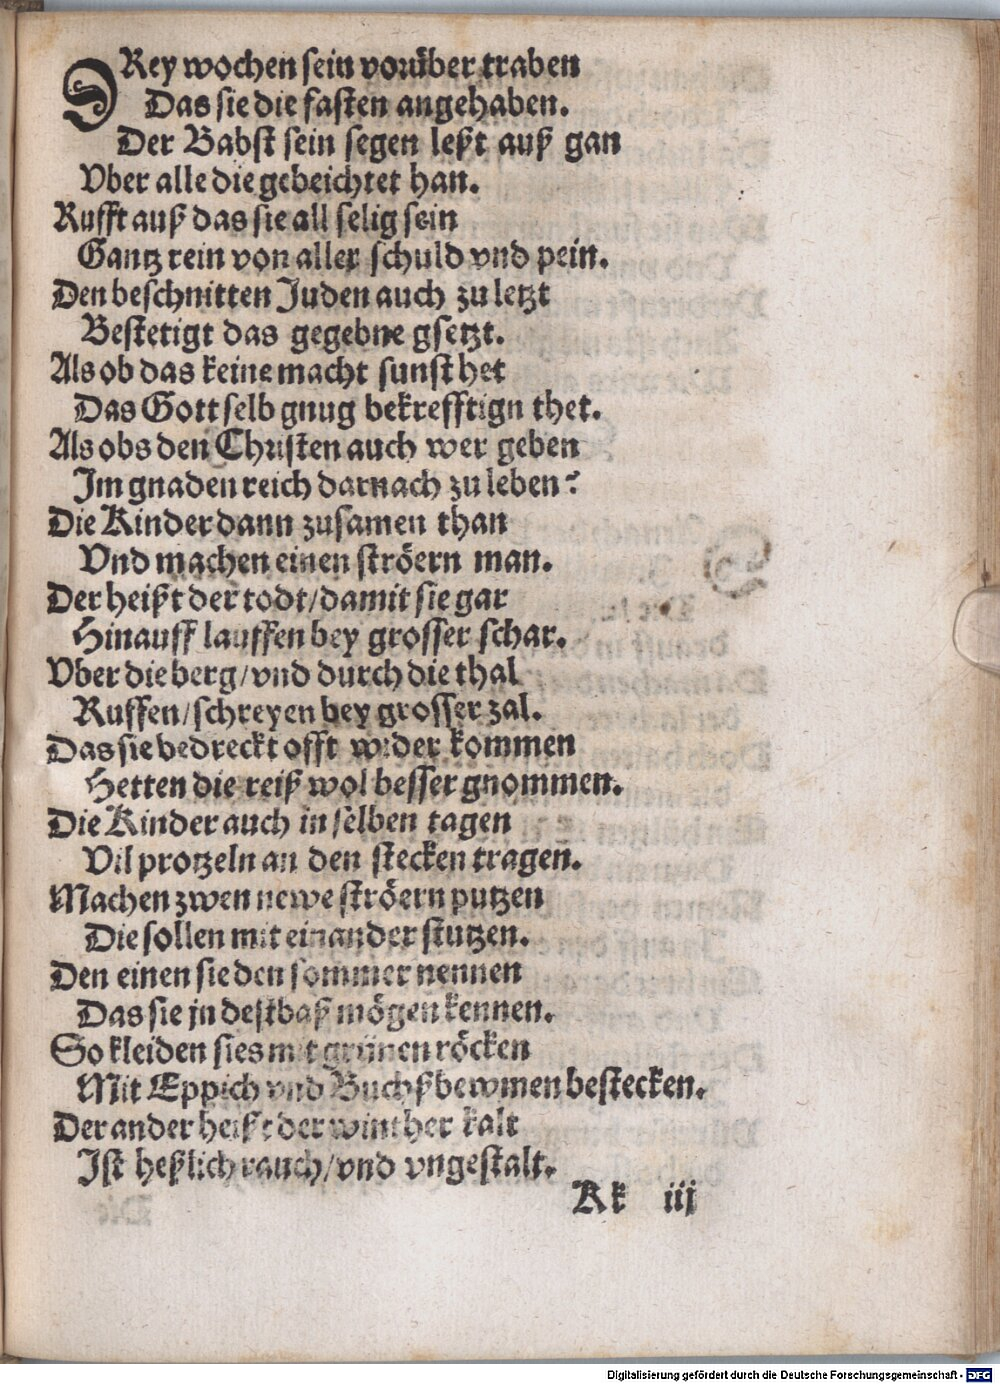 DRey wochen sein vorüber traben
Das sie die fasten angehaben.
Der Babst sein segen leßt auß gan
Vber alle die gebeichtet han.
Rufft auß das sie all selig sein
Gantz rein von aller schuld vnd pein.
Den beschnitten Juden auch zu letzt
Bestetigt das gegebne gsetzt.
Als ob das keine macht sunst het
Das Gott selb gnug bekrefftign thet.
Als obs den Christen auch wer geben
Im gnaden reich darnach zu leben?
Die Kinder dann zusamen than
Vnd machen einen ströern man.
Der heißt der todt/damit sie gar
Hinauff lauffen bey grosser schar.
Vber die berg/vnd durch die thal
Ruffen/schreyen bey grosser zal.
Das sie bedreckt offt wider kommen
Hetten die reiß wol besser gnommen.
Die Kinder auch in selben tagen
Vil protzeln an den stecken tragen.
Machen zwen newe ströern putzen
Die sollen mit einander stutzen.
Den einen sie den sommer nennen
Das sie jn destbaß mögen kennen.
So kleiden sies mit grünen röcken
Mit Eppich vnd Buchßbewmen bestecken.
Der ander heißt der winther kalt
Ist heßlich rauch/vnd vngestalt.
Kk iij
Digitalisierung gefördert durch die Deutsche Forschungsgemeinschaft - DFG